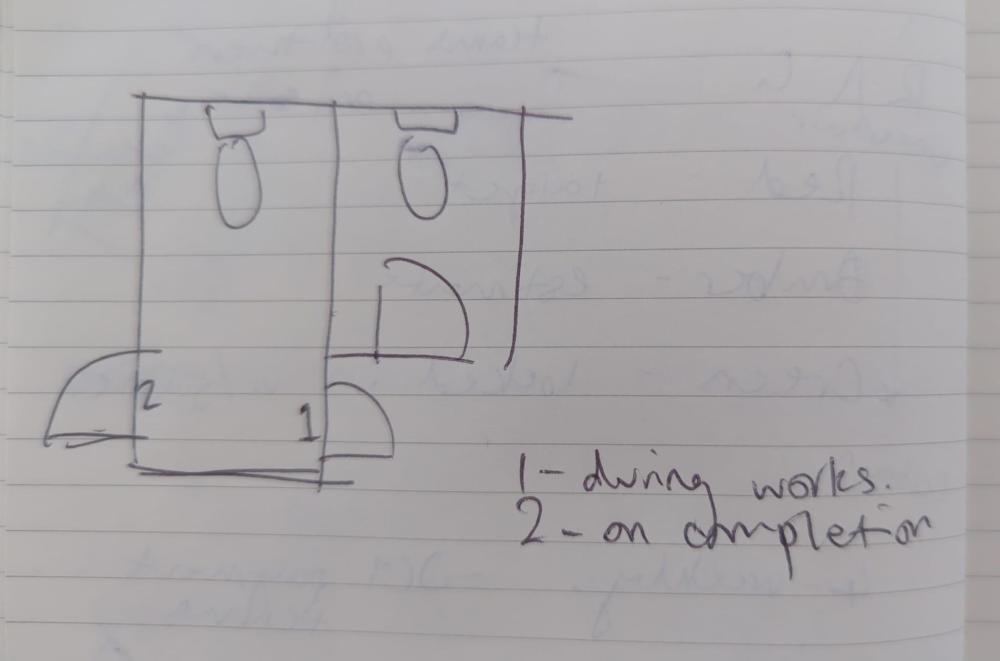 2
1
1 - during works.
2 - on completion